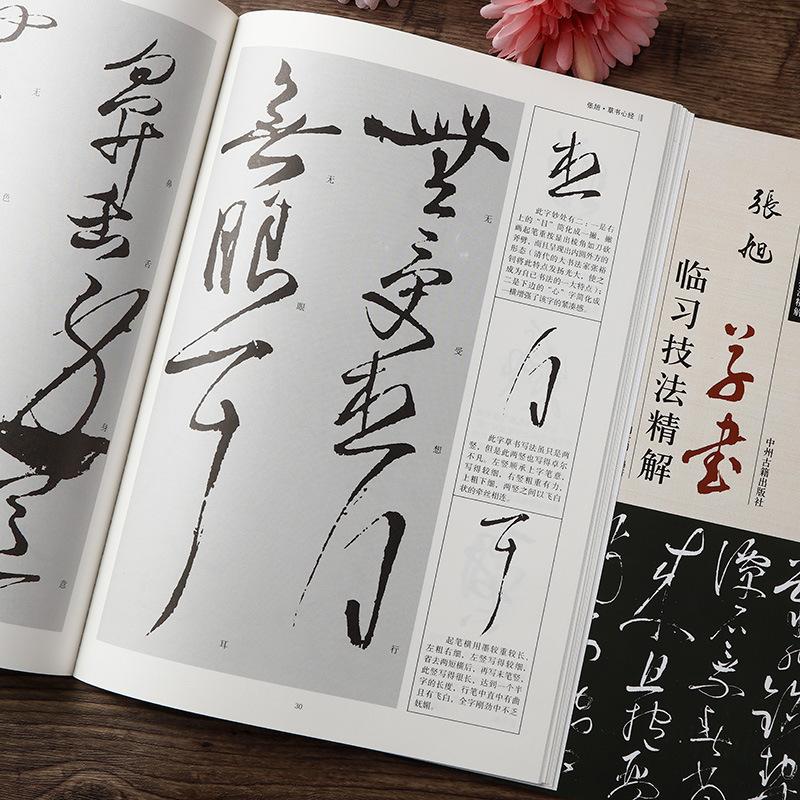 张旭·草书心经
無受想行
無眼耳
无
受
想
行
无
眼
耳
鼻舌身意
无
色
鼻
舌
身
意
想
此字妙处有二：一是右
上的“目”简化成一撇，撇
画起笔重按显出棱角如刀砍
斧劈，而且呈现出内圆外方的
形态（清代的大书法家张裕
钊将此特点发扬光大，使之
成为自己书法的一大特点）；
二是下边的“心”字简化成
一横增强了该字的紧凑感。
行
此字草书写法虽只是两
竖，但是此两竖也写得卓尔
不凡。左竖顺承上字笔意，
写得较细，右竖粗重有力，
上粗下细，两竖之间以飞白
状的牵丝相连。
耳
起笔横用墨较重较长，
左粗右细，左竖写得较细，
省去两短横后，再写末笔竖，
此竖写得很长，达到一个半
字的长度，行笔中直中有曲
且有飞白，全字刚劲中不乏
妩媚。
30
張旭
草書
临习技法精解
中州古籍出版社